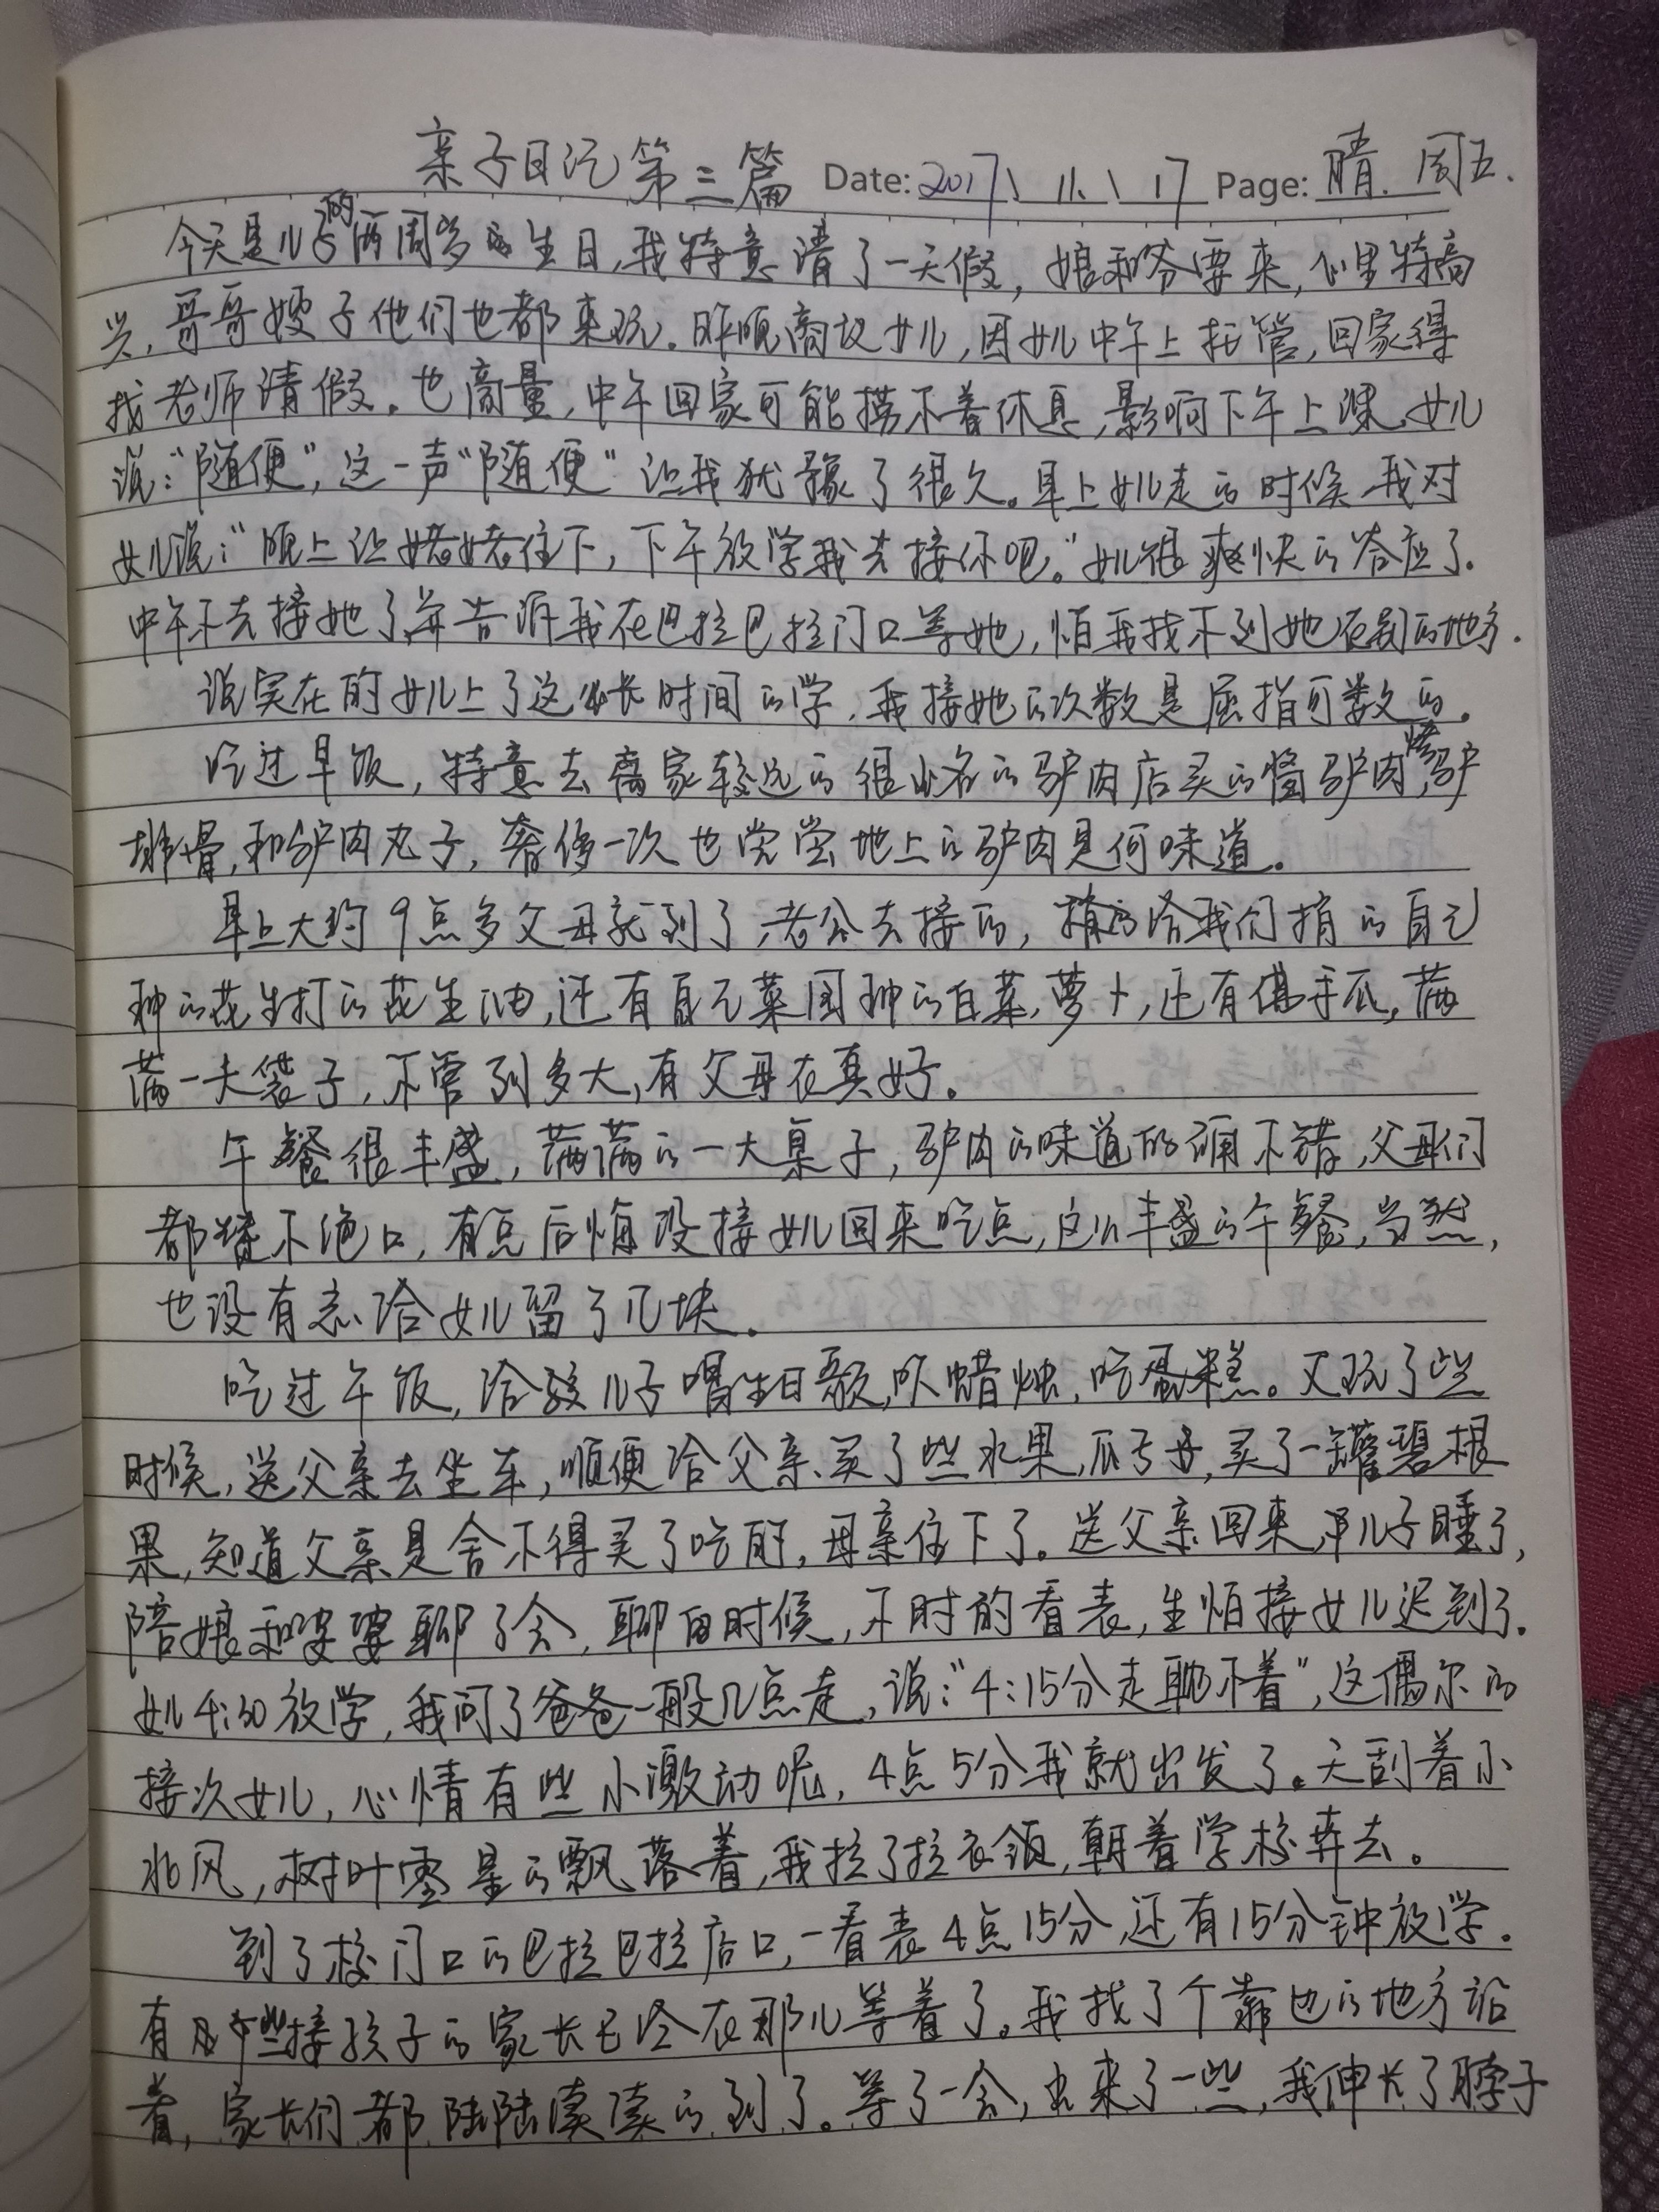 亲子日记第三篇 Date: 2017 \ 11 \ 17 Page: 晴. 周五.
今天是儿子的两周岁的生日,我特意请了一天假,娘和爷要来,心里特高
兴,哥哥嫂子他们也都来玩。昨晚商议女儿,因女儿中午上托管,回家得
找老师请假。也商量,中午回家可能捞不着休息,影响下午上课,女儿
说:“随便”,这一声“随便”让我犹豫了很久。早上女儿走的时候,我对
女儿说:“晚上让姥姥住下,下午放学我去接你吧。”女儿很爽快的答应了.
中午不去接她了,并告诉我在巴拉巴拉门口等她,怕我找不到她在别的地方.
说实在的女儿上了这么长时间的学,我接她的次数是屈指可数的。
吃过早饭,特意去离家较远的很出名的驴肉店买的酱驴肉,驴
排骨,和驴肉丸子,奢侈一次也尝尝地上的驴肉是何味道。
早上大约9点多父母就到了,老公去接的,给我们捎的自己
种的花生打的花生油,还有自己菜园种的白菜,萝卜,还有佛手瓜,满
满一大袋子,不管到多大,有父母在真好。
午餐很丰盛,满满的一大桌子,驴肉的味道的确不错,父母们
都赞不绝口,有点后悔没接女儿回来吃点,这么丰盛的午餐,当然,
也没有忘给女儿留了几块。
吃过午饭,给我儿子唱生日歌,吹蜡烛,吃蛋糕。又玩了些
时候,送父亲去坐车,顺便给父亲买了些水果,瓜子,买了一罐碧根
果,知道父亲是舍不得买了吃的,母亲住下了。送父亲回来,儿子睡了,
陪娘和婆婆聊了会,聊的时候,不时的看表,生怕接女儿迟到了.
女儿4:30放学,我问了爸爸一般几点走,说:“4:15分走耽不着”,这偶尔的
接次女儿,心情有些小激动呢,4点5分我就出发了。天刮着小
北风,树叶零星的飘落着,我拉了拉衣领,朝着学校奔去。
到了校门口的巴拉巴拉店口,一看表4点15分,还有15分钟放学.
有些接孩子的家长已经在那儿等着了。我找了个靠边的地方站
着,家长们都陆陆续续的到了。等了一会,出来了一些,我伸长了脖子